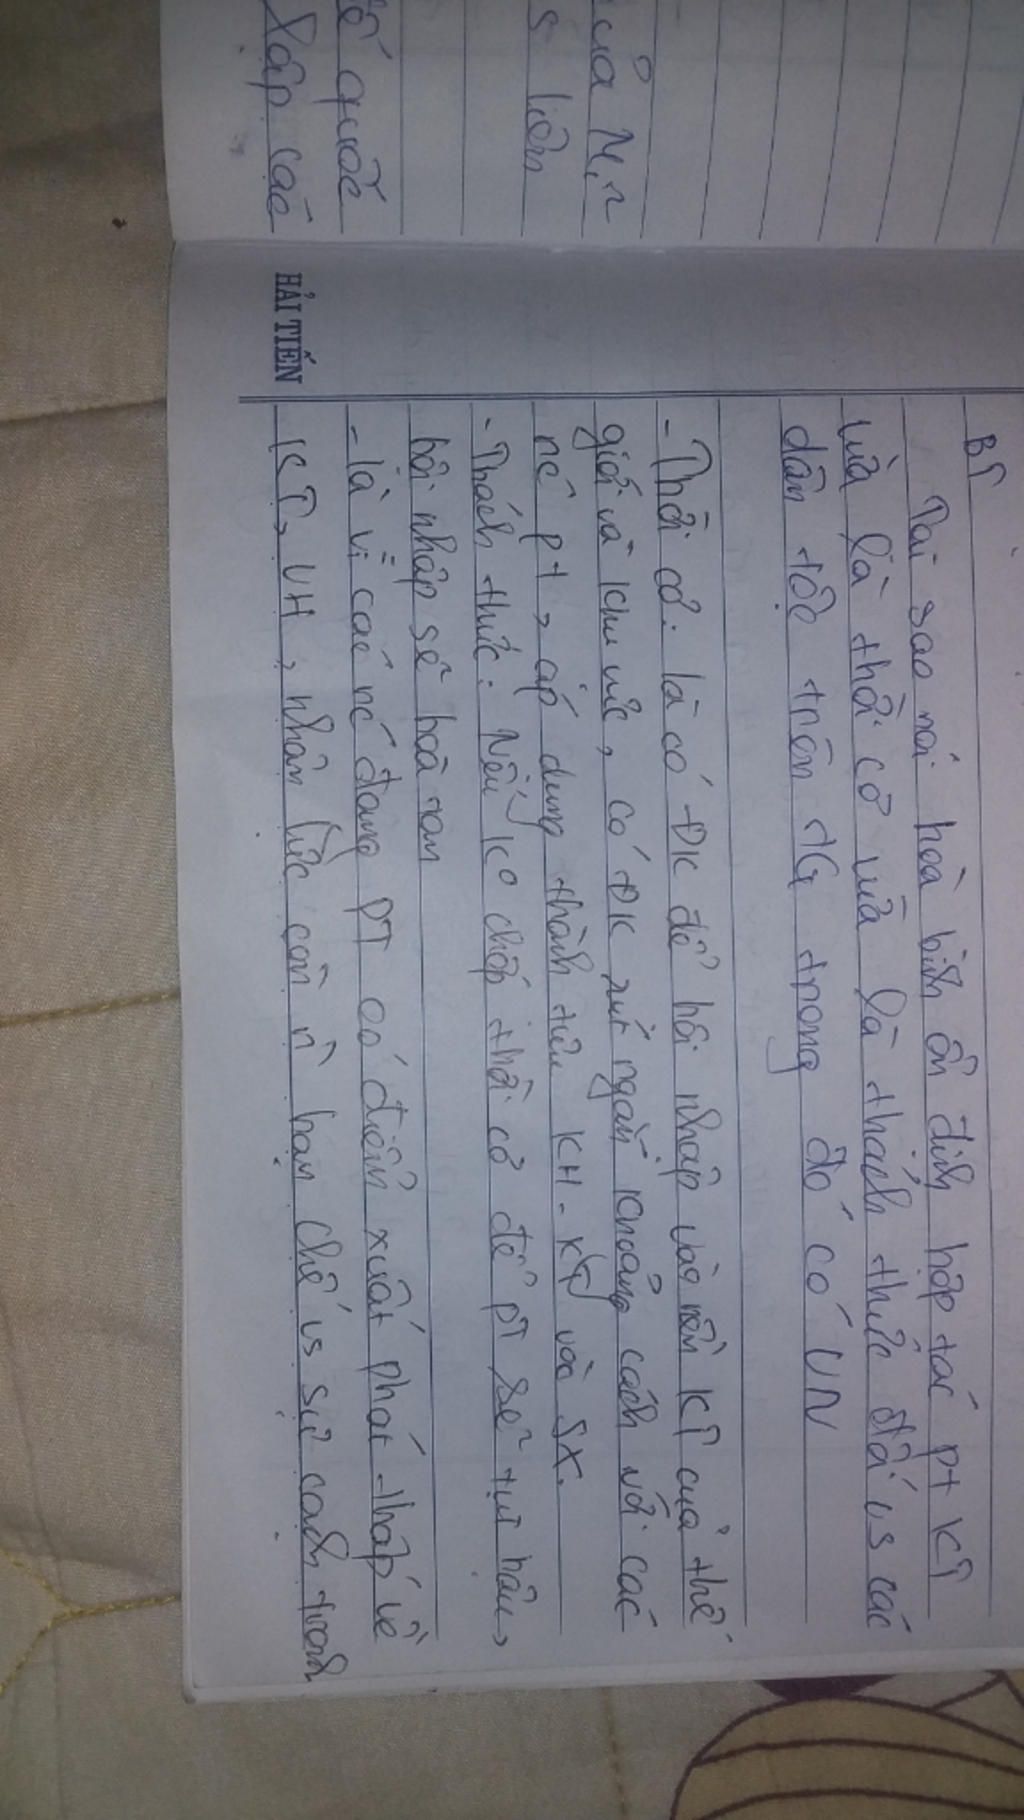 của N,n
s liên
ế quốc
lập các
BT
Tại sao nói hoà bình ổn định hợp tác pt KT
vừa là thời cơ vừa là thách thức đối vs các
dân tộc trên TG trong đó có VN
- Thời cơ: là có ĐK để hội nhập vào nền KT của thế
giới và khu vực, có ĐK rút ngắn khoảng cách với các
nc pt, áp dụng thành tựu KH-KT vào SX.
- Thách thức: Nếu ko chớp thời cơ để pt sẽ tụt hậu,
hội nhập sẽ hoà tan
- là vì các nc đang PT có điểm xuất phát thấp về
KT, VH, nhân lực còn n hạn chế vs sự cạnh tranh
HẢI TIẾN